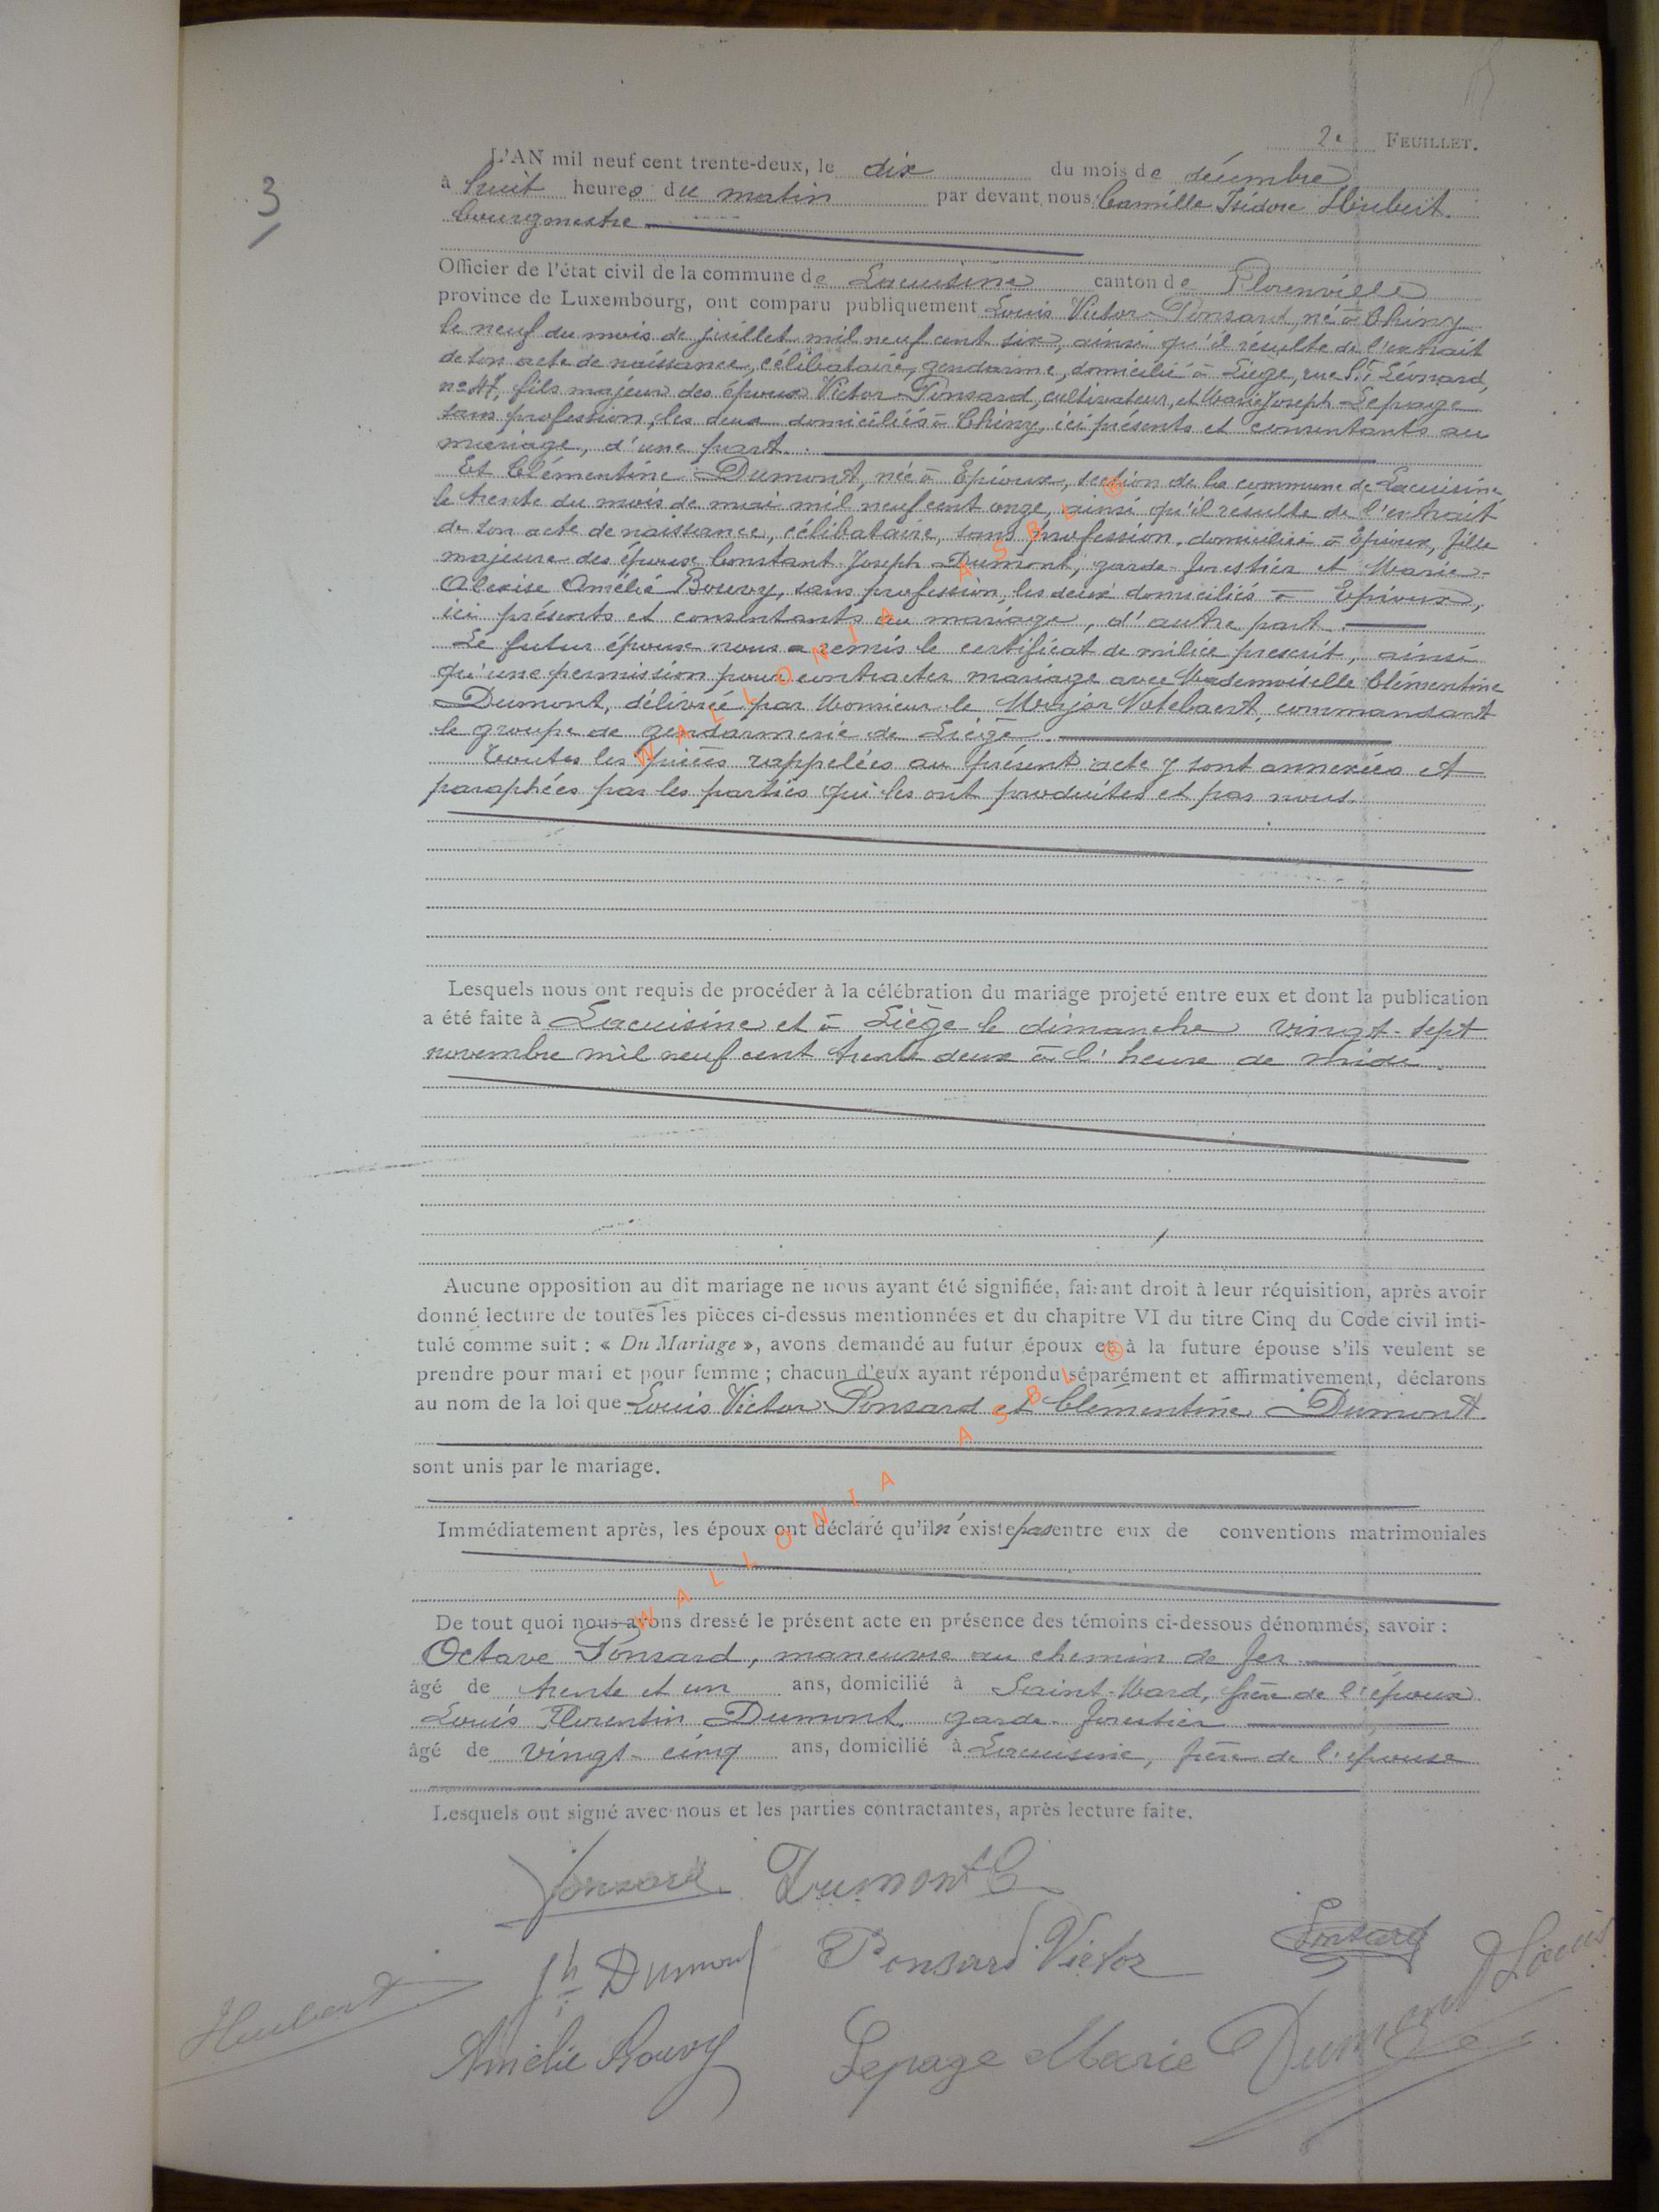 2e FEUILLET.
3
L'AN mil neuf cent trente-deux, le dix du mois de décembre
à huit heures du matin par devant nous Camille Isidore Hubert
bourgmestre
Officier de l'état civil de la commune de Lacuisine canton de Florenville
province de Luxembourg, ont comparu publiquement Louis Victor Ponsard, né à Chiny
le neuf du mois de juillet mil neuf cent six, ainsi qu'il résulte de l'extrait
de son acte de naissance, célibataire, gendarme, domicilié à Liège, rue St Léonard,
n° 47, fils majeur des époux Victor Ponsard, cultivateur, et Marie Joseph Lepage
sans profession, les deux domiciliés à Chiny, ici présents et consentants au
mariage, d'une part.
Et Clémentine Dumont, née à Epioux, section de la commune de Lacuisine,
le trente du mois de mai mil neuf cent onze, ainsi qu'il résulte de l'extrait
de son acte de naissance, célibataire, sans profession, domiciliée à Epioux, fille
majeure des époux Constant Joseph Dumont, garde-forestier et Marie-
Alexise Amélie Bouvy, sans profession, les deux domiciliés à Epioux,
ici présents et consentants au mariage, d'autre part.
Le futur époux nous a remis le certificat de milice prescrit, ainsi
qu'une permission pour contracter mariage avec Mademoiselle Clémentine
Dumont, délivrée par Monsieur le Major commandant
le groupe de gendarmerie de Liège.
Toutes les pièces rappelées au présent acte y sont annexées et
paraphées par les parties qui les ont produites et par nous.
Lesquels nous ont requis de procéder à la célébration du mariage projeté entre eux et dont la publication
a été faite à Lacuisine et à Liège le dimanche vingt-sept
novembre mil neuf cent trente deux à l'heure de midi
Aucune opposition au dit mariage ne nous ayant été signifiée, faisant droit à leur réquisition, après avoir
donné lecture de toutes les pièces ci-dessus mentionnées et du chapitre VI du titre Cinq du Code civil inti-
tulé comme suit : « Du Mariage », avons demandé au futur époux et à la future épouse s'ils veulent se
prendre pour mari et pour femme ; chacun d'eux ayant répondu séparément et affirmativement, déclarons
au nom de la loi que Louis Victor Ponsard et Clémentine Dumont
sont unis par le mariage.
Immédiatement après, les époux ont déclaré qu'il n'existe pas entre eux de conventions matrimoniales
De tout quoi nous avons dressé le présent acte en présence des témoins ci-dessous dénommés, savoir :
Octave Ponsard, maneuvre au chemin de fer
âgé de trente et un ans, domicilié à Saint-Mard, frère de l'époux
Louis Florentin Dumont, garde-forestier
âgé de vingt-cinq ans, domicilié à Lacuisine, frère de l'épouse
Lesquels ont signé avec nous et les parties contractantes, après lecture faite.
Ponsard Dumont C
Jh Dumont Ponsard Victor Ponsard
Hubert Amélie Bouvy Lepage Marie Dumont Louis
WALLONIA ASBL ®
WALLONIA ASBL ®